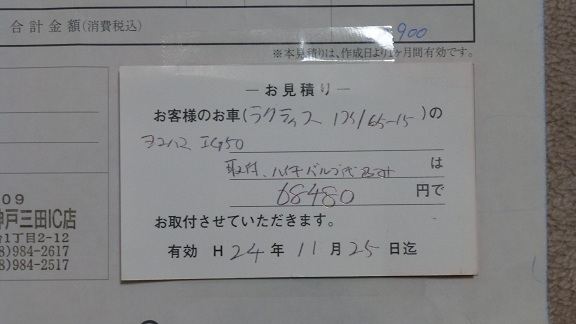 合計金額(消費税込)
900
※本見積りは、作成日より1ヶ月間有効です。
―お見積り―
お客様のお車(ラクティス 175/65-15)の
ヨコハマ IG50
取付、ハイキバルブ代含み は
68480 円で
お取付させていただきます。
有効 H24年11月25日迄
09
神戸三田IC店
台1丁目2-12
8)984-2617
8)984-2517